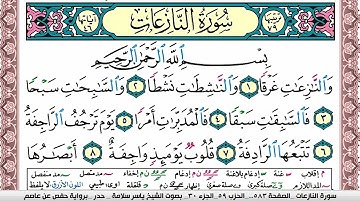 سُورَةُ النَّازِعَاتِ
بِسْمِ اللَّهِ الرَّحْمَٰنِ الرَّحِيمِ
وَالنَّازِعَاتِ غَرْقًا ١ وَالنَّاشِطَاتِ نَشْطًا ٢ وَالسَّابِحَاتِ سَبْحًا
٣ فَالسَّابِقَاتِ سَبْقًا ٤ فَالْمُدَبِّرَاتِ أَمْرًا ٥ يَوْمَ تَرْجُفُ الرَّاجِفَةُ
٦ تَتْبَعُهَا الرَّادِفَةُ ٧ قُلُوبٌ يَوْمَئِذٍ وَاجِفَةٌ ٨ أَبْصَارُهَا
سورة النازعات .. الصفحة ٥٨٣ .. الحزب ٥٩ .. الجزء ٣٠ .. بصوت الشيخ ياسر سلامة .. حدر .. برواية حفص عن عاصم